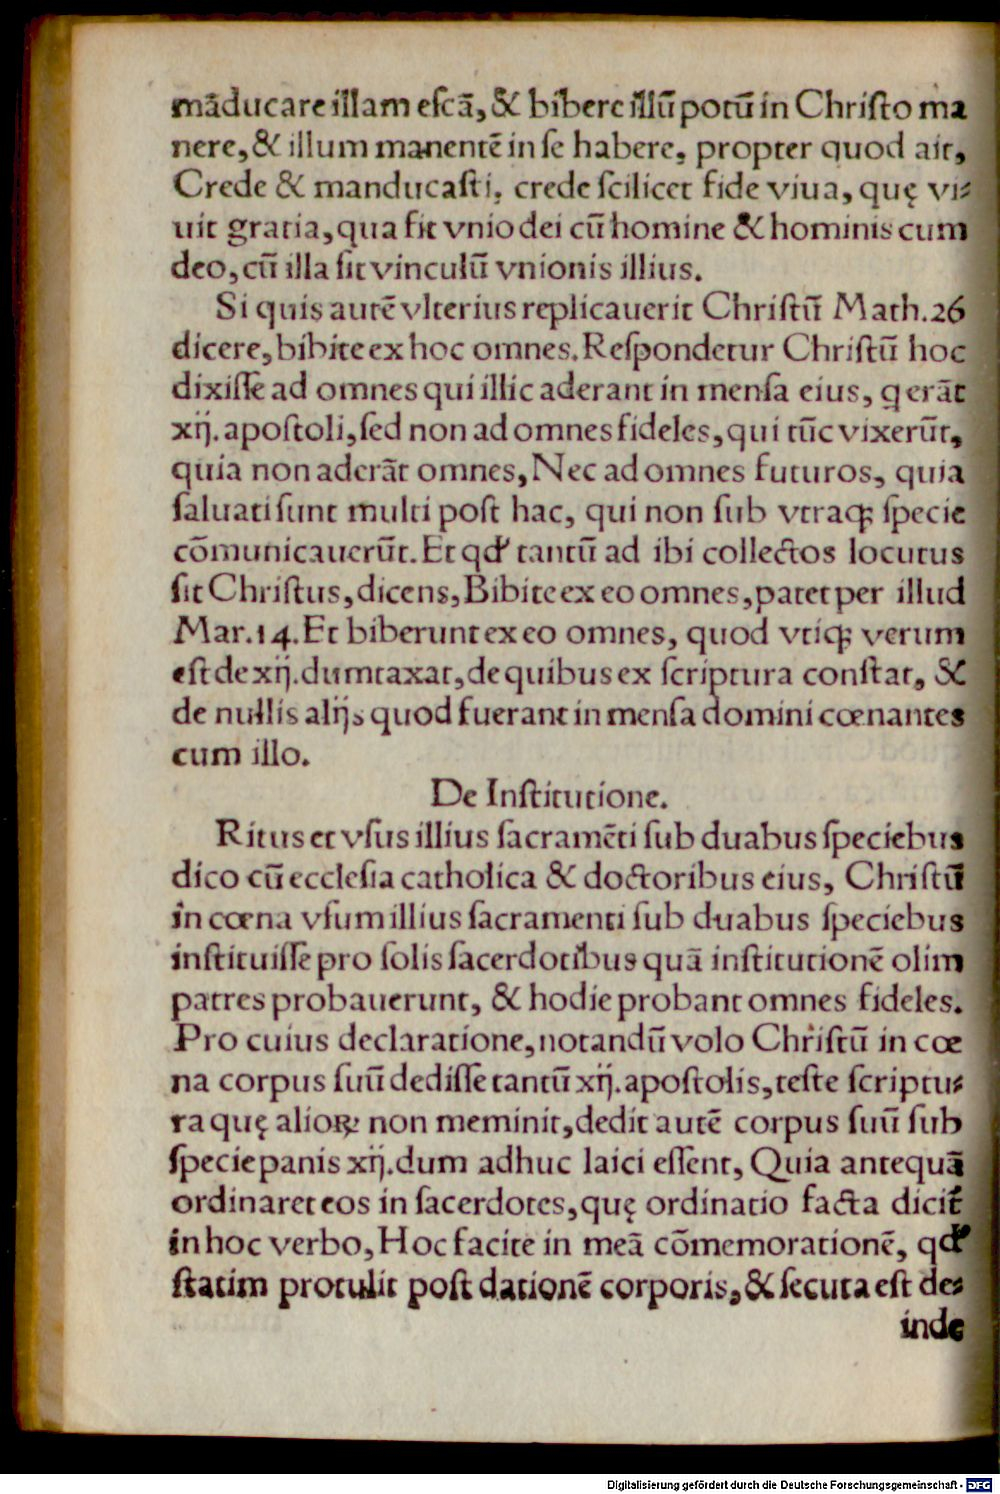 mãducare illam eſcã, & bibere illũ potũ in Chriſto ma
nere, & illum manentẽ in ſe habere, propter quod ait,
Crede & manducaſti, crede ſcilicet fide viua, quę vi⸗
uit gratia, qua fit vnio dei cũ homine & hominis cum
deo, cũ illa ſit vinculũ vnionis illius.
Si quis autẽ vlterius replicauerit Chriſtũ Math. 26
dicere, bibite ex hoc omnes. Reſpondetur Chriſtũ hoc
dixiſſe ad omnes qui illic aderant in menſa eius, q erãt
xij. apoſtoli, ſed non ad omnes fideles, qui tũc vixerũt,
quia non aderãt omnes, Nec ad omnes futuros, quia
ſaluati ſunt multi poſt hac, qui non ſub vtraqꝫ ſpecie
cõmunicauerũt. Et qd' tantũ ad ibi collectos locutus
ſit Chriſtus, dicens, Bibite ex eo omnes, patet per illud
Mar. 14. Et biberunt ex eo omnes, quod vtiqꝫ verum
eſt de xij. dumtaxat, de quibus ex ſcriptura conſtat, &
de nullis alijs quod fuerant in menſa domini cœnantes
cum illo.
De Inſtitutione.
Ritus et vſus illius ſacramẽti ſub duabus ſpeciebus
dico cũ eccleſia catholica & doctoribus eius, Chriſtũ
in cœna vſum illius ſacramenti ſub duabus ſpeciebus
inſtituiſſe pro ſolis ſacerdotibus quã inſtitutionẽ olim
patres probauerunt, & hodie probant omnes fideles.
Pro cuius declaratione, notandũ volo Chriſtũ in cœ
na corpus ſuũ dediſſe tantũ xij. apoſtolis, teſte ſcriptu⸗
ra quę alioꝝ non meminit, dedit autẽ corpus ſuũ ſub
ſpecie panis xij. dum adhuc laici eſſent, Quia antequã
ordinaret eos in ſacerdotes, quę ordinatio facta dicit̃
in hoc verbo, Hoc facite in meã cõmemorationẽ, qd'
ſtatim protulit poſt dationẽ corporis, & ſecuta eſt de⸗
inde
Digitalisierung gefördert durch die Deutsche Forschungsgemeinschaft - DFG